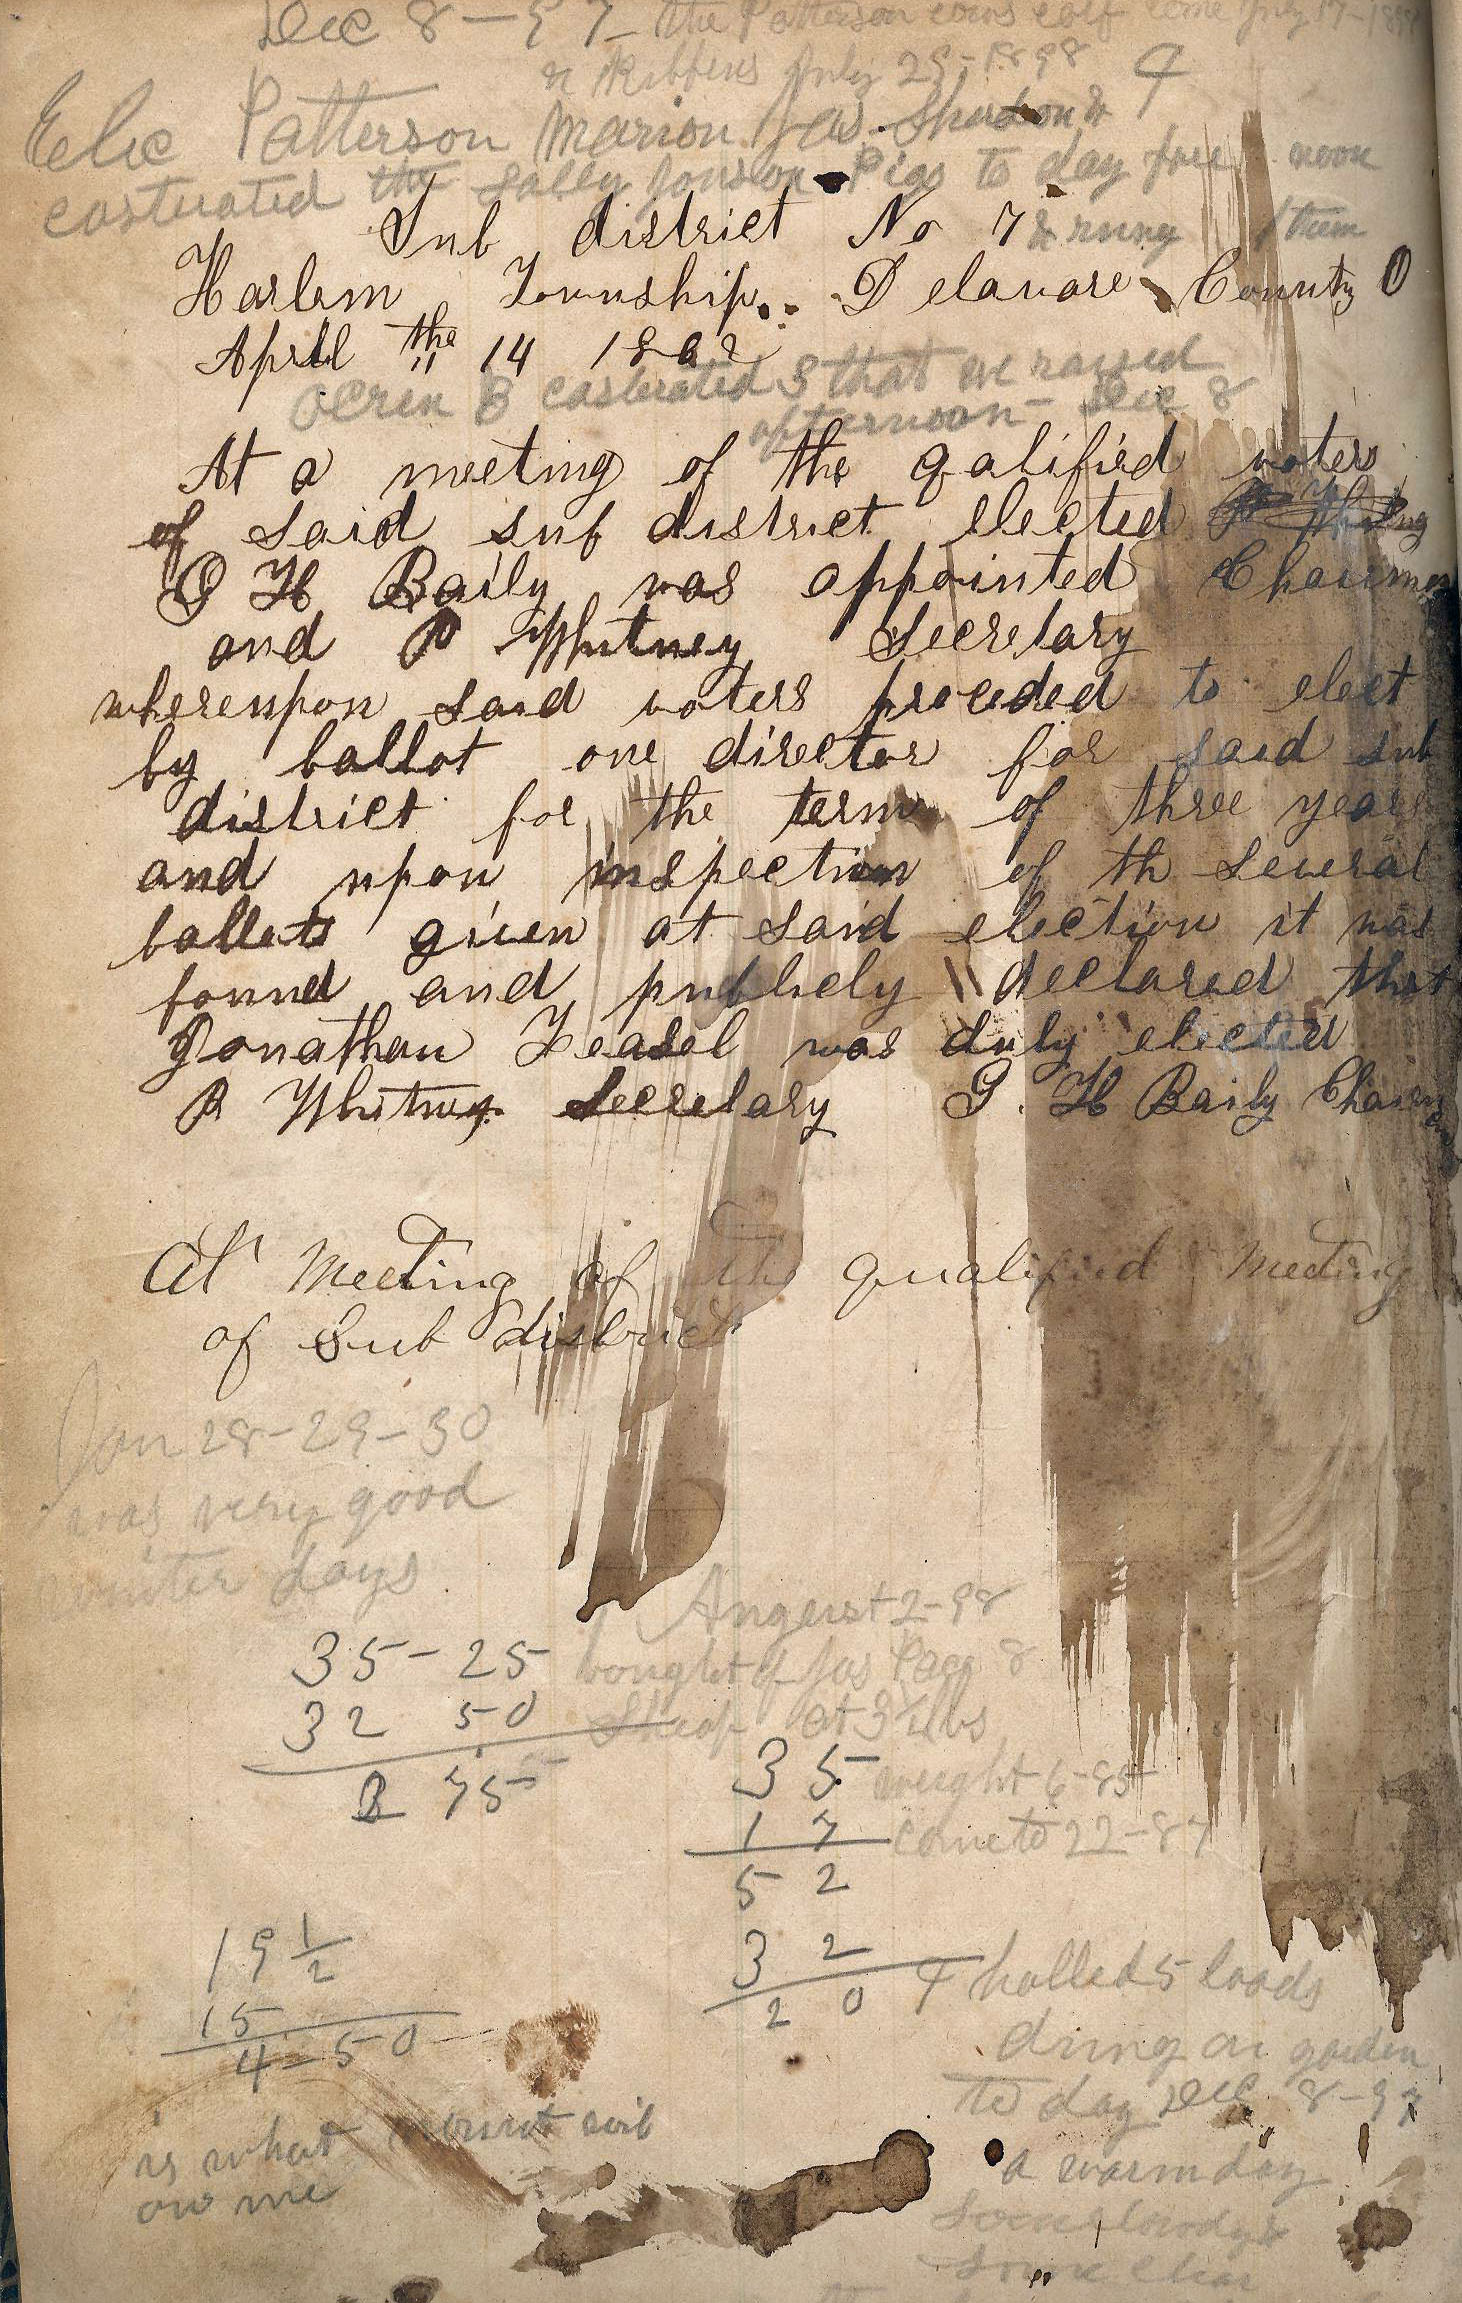 Dec 8-97 the Patterson cows calf come July 17-1898
July 29-1898
Patterson Marion
casterated the Sally Pigs to day fore noon
Sub district No 7 & rung them
Harlem Township. Delaware County O
April the 14 1862
Oeren B casterated 3 that we raised
afternoon - Dec 8
At a meeting of the qalified voters
of said sub district elected
G H Baily was appointed Chairman
and P Whitney Secretary
whereupon said voters proceded to elect
by ballot one director for said sub
district for the term of three years
and upon inspection of th several
ballots given at said election it was
found and publicly declared that
Jonathan Feasel was duly elected
P Whitney Secretary G. H Baily Chairman
At Meeting of the qualified Meeting
of Sub district
Jan 28-29-30
was very good
winter days
Angerst 2-98
35-25 bought of Jas 8
32 50 Sheap at 3 lbs
2 75
35 weight 6-85
17 come to 22-87
52
32
20
19 1/2
15
4=50
is what
ow me
halled 5 loads
dung on garden
to day Dec 8-97
a warm day
some clowdy &
some clear